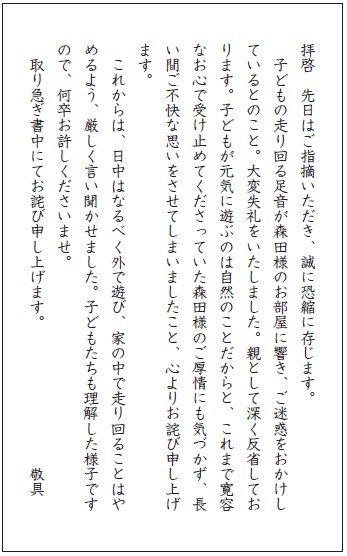 拝啓　先日はご指摘いただき、誠に恐縮に存じます。
　子どもの走り回る足音が森田様のお部屋に響き、ご迷惑をおかけし
ているとのこと。大変失礼をいたしました。親として深く反省してお
ります。子どもが元気に遊ぶのは自然のことだからと、これまで寛容
なお心で受け止めてくださっていた森田様のご厚情にも気づかず、長
い間ご不快な思いをさせてしまいましたこと、心よりお詫び申し上げ
ます。
　これからは、日中はなるべく外で遊び、家の中で走り回ることはや
めるよう、厳しく言い聞かせました。子どもたちも理解した様子です
ので、何卒お許しくださいませ。
　取り急ぎ書中にてお詫び申し上げます。　　　　　　　　敬具